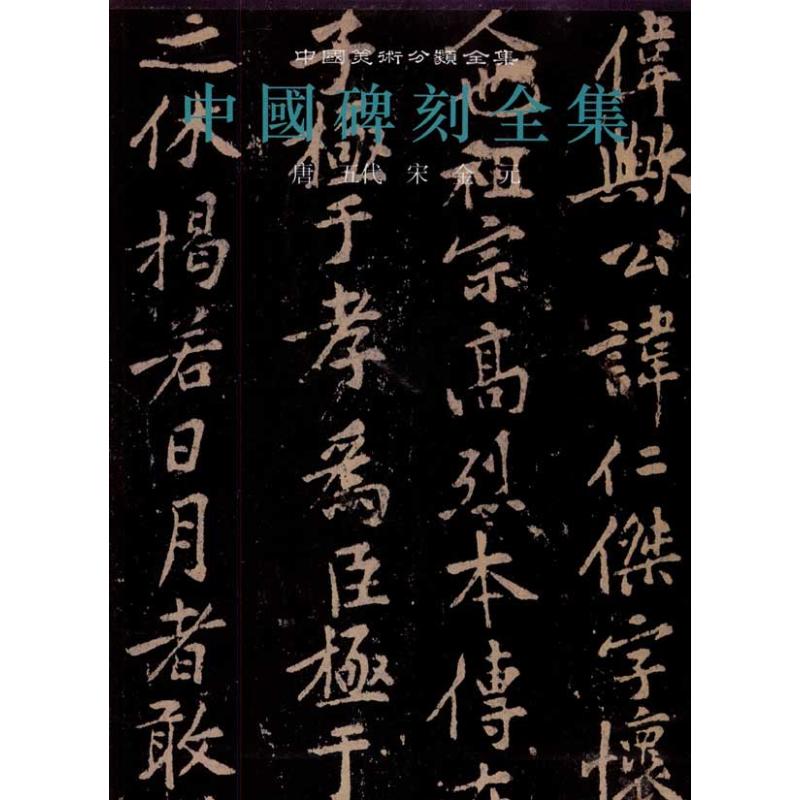 中國美術分類全集
中國碑刻全集
唐 五代 宋 金 元
偉歟公諱仁傑字懷
人也祖宗高烈本傳
子極于孝爲臣極于
之休揭若日月者敢